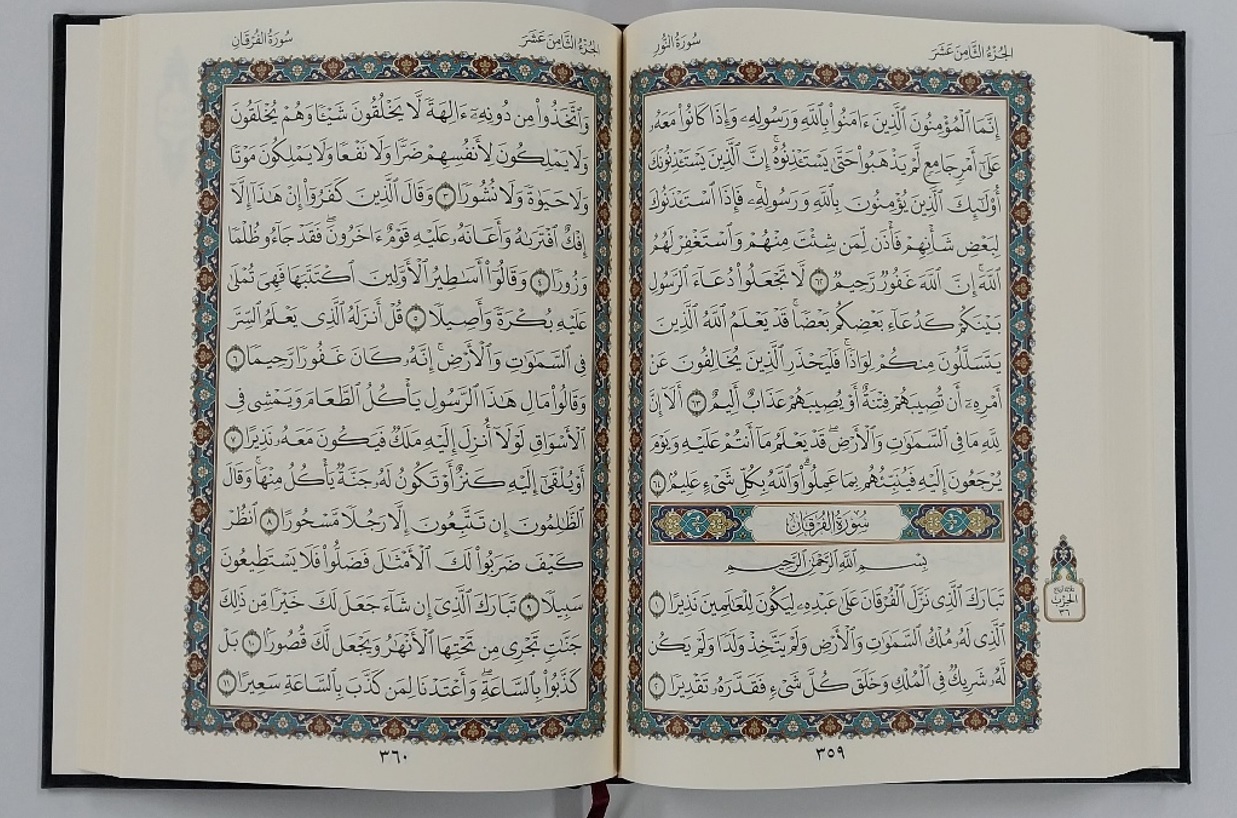 الجزء الثامن عشر
سورة النور
إِنَّمَا ٱلْمُؤْمِنُونَ ٱلَّذِينَ ءَامَنُوا۟ بِٱللَّهِ وَرَسُولِهِۦ وَإِذَا كَانُوا۟ مَعَهُۥ
عَلَىٰٓ أَمْرٍ جَامِعٍ لَّمْ يَذْهَبُوا۟ حَتَّىٰ يَسْتَـْٔذِنُوهُ ۚ إِنَّ ٱلَّذِينَ يَسْتَـْٔذِنُونَكَ
أُو۟لَـٰٓئِكَ ٱلَّذِينَ يُؤْمِنُونَ بِٱللَّهِ وَرَسُولِهِۦ ۚ فَإِذَا ٱسْتَـْٔذَنُوكَ
لِبَعْضِ شَأْنِهِمْ فَأْذَن لِّمَن شِئْتَ مِنْهُمْ وَٱسْتَغْفِرْ لَهُمُ
ٱللَّهَ ۚ إِنَّ ٱللَّهَ غَفُورٌ رَّحِيمٌ ٦٢ لَّا تَجْعَلُوا۟ دُعَآءَ ٱلرَّسُولِ
بَيْنَكُمْ كَدُعَآءِ بَعْضِكُم بَعْضًا ۚ قَدْ يَعْلَمُ ٱللَّهُ ٱلَّذِينَ
يَتَسَلَّلُونَ مِنكُمْ لِوَاذًا ۚ فَلْيَحْذَرِ ٱلَّذِينَ يُخَالِفُونَ عَنْ
أَمْرِهِۦٓ أَن تُصِيبَهُمْ فِتْنَةٌ أَوْ يُصِيبَهُمْ عَذَابٌ أَلِيمٌ ٦٣ أَلَآ إِنَّ
لِلَّهِ مَا فِى ٱلسَّمَـٰوَٰتِ وَٱلْأَرْضِ ۖ قَدْ يَعْلَمُ مَآ أَنتُمْ عَلَيْهِ وَيَوْمَ
يُرْجَعُونَ إِلَيْهِ فَيُنَبِّئُهُم بِمَا عَمِلُوا۟ ۗ وَٱللَّهُ بِكُلِّ شَىْءٍ عَلِيمٌۢ ٦٤
سورة الفرقان
بِسْمِ ٱللَّهِ ٱلرَّحْمَـٰنِ ٱلرَّحِيمِ
تَبَارَكَ ٱلَّذِى نَزَّلَ ٱلْفُرْقَانَ عَلَىٰ عَبْدِهِۦ لِيَكُونَ لِلْعَـٰلَمِينَ نَذِيرًا ١
ٱلَّذِى لَهُۥ مُلْكُ ٱلسَّمَـٰوَٰتِ وَٱلْأَرْضِ وَلَمْ يَتَّخِذْ وَلَدًا وَلَمْ يَكُن
لَّهُۥ شَرِيكٌ فِى ٱلْمُلْكِ وَخَلَقَ كُلَّ شَىْءٍ فَقَدَّرَهُۥ تَقْدِيرًا ٢
الحزب
٣٦
٣٥٩
الجزء الثامن عشر
سورة الفرقان
وَٱتَّخَذُوا۟ مِن دُونِهِۦٓ ءَالِهَةً لَّا يَخْلُقُونَ شَيْـًٔا وَهُمْ يُخْلَقُونَ
وَلَا يَمْلِكُونَ لِأَنفُسِهِمْ ضَرًّا وَلَا نَفْعًا وَلَا يَمْلِكُونَ مَوْتًا
وَلَا حَيَوٰةً وَلَا نُشُورًا ٣ وَقَالَ ٱلَّذِينَ كَفَرُوٓا۟ إِنْ هَـٰذَآ إِلَّآ
إِفْكٌ ٱفْتَرَىٰهُ وَأَعَانَهُۥ عَلَيْهِ قَوْمٌ ءَاخَرُونَ ۖ فَقَدْ جَآءُو ظُلْمًا
وَزُورًا ٤ وَقَالُوٓا۟ أَسَـٰطِيرُ ٱلْأَوَّلِينَ ٱكْتَتَبَهَا فَهِىَ تُمْلَىٰ
عَلَيْهِ بُكْرَةً وَأَصِيلًا ٥ قُلْ أَنزَلَهُ ٱلَّذِى يَعْلَمُ ٱلسِّرَّ
فِى ٱلسَّمَـٰوَٰتِ وَٱلْأَرْضِ ۚ إِنَّهُۥ كَانَ غَفُورًا رَّحِيمًا ٦
وَقَالُوا۟ مَالِ هَـٰذَا ٱلرَّسُولِ يَأْكُلُ ٱلطَّعَامَ وَيَمْشِى فِى
ٱلْأَسْوَاقِ ۙ لَوْلَآ أُنزِلَ إِلَيْهِ مَلَكٌ فَيَكُونَ مَعَهُۥ نَذِيرًا ٧
أَوْ يُلْقَىٰٓ إِلَيْهِ كَنزٌ أَوْ تَكُونُ لَهُۥ جَنَّةٌ يَأْكُلُ مِنْهَا ۚ وَقَالَ
ٱلظَّـٰلِمُونَ إِن تَتَّبِعُونَ إِلَّا رَجُلًا مَّسْحُورًا ٨ ٱنظُرْ
كَيْفَ ضَرَبُوا۟ لَكَ ٱلْأَمْثَـٰلَ فَضَلُّوا۟ فَلَا يَسْتَطِيعُونَ
سَبِيلًا ٩ تَبَارَكَ ٱلَّذِىٓ إِن شَآءَ جَعَلَ لَكَ خَيْرًا مِّن ذَٰلِكَ
جَنَّـٰتٍ تَجْرِى مِن تَحْتِهَا ٱلْأَنْهَـٰرُ وَيَجْعَل لَّكَ قُصُورًۢا ١٠ بَلْ
كَذَّبُوا۟ بِٱلسَّاعَةِ ۖ وَأَعْتَدْنَا لِمَن كَذَّبَ بِٱلسَّاعَةِ سَعِيرًا ١١
٣٦٠